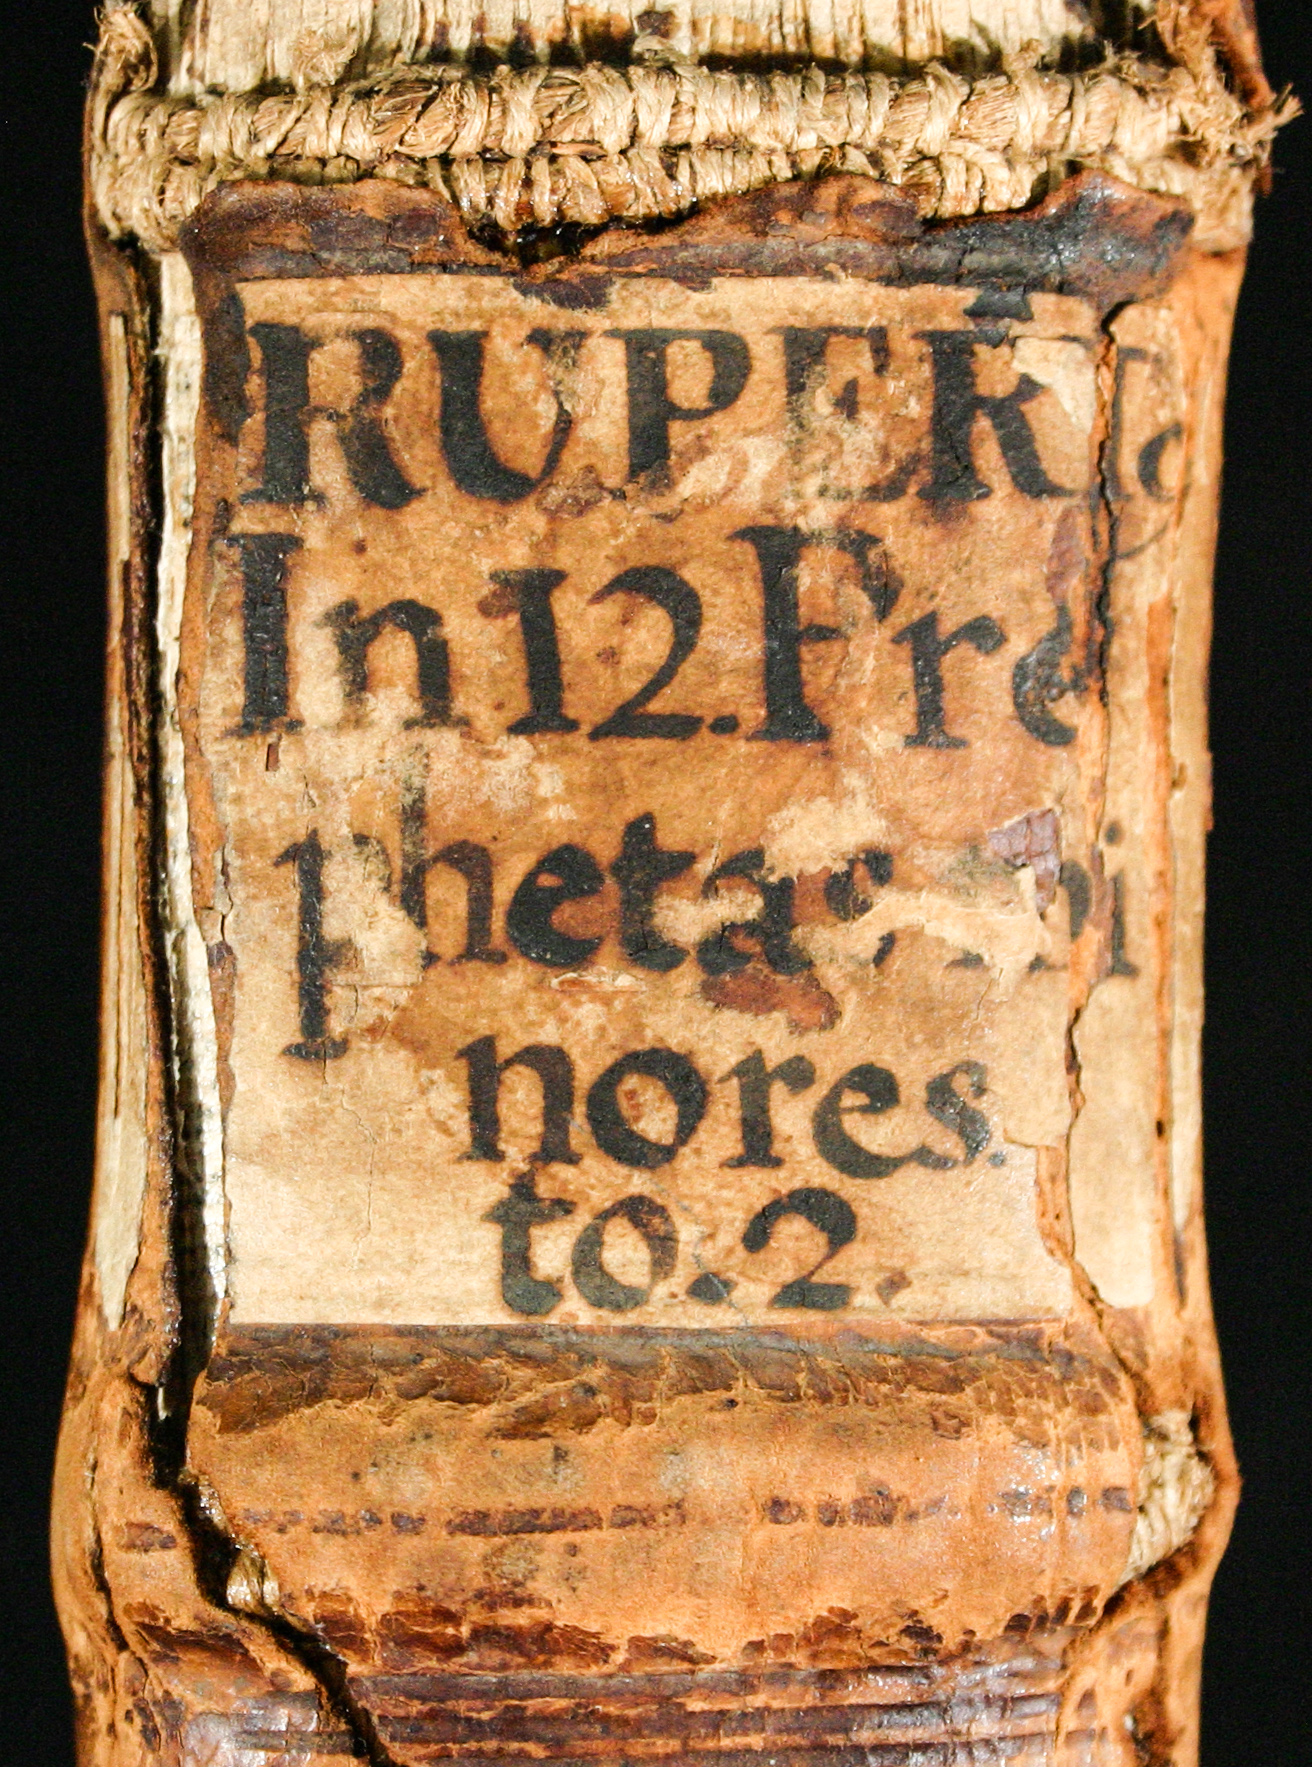 RUPERTꝰ
In 12. Pro
phetas mi
nores.
to. 2.